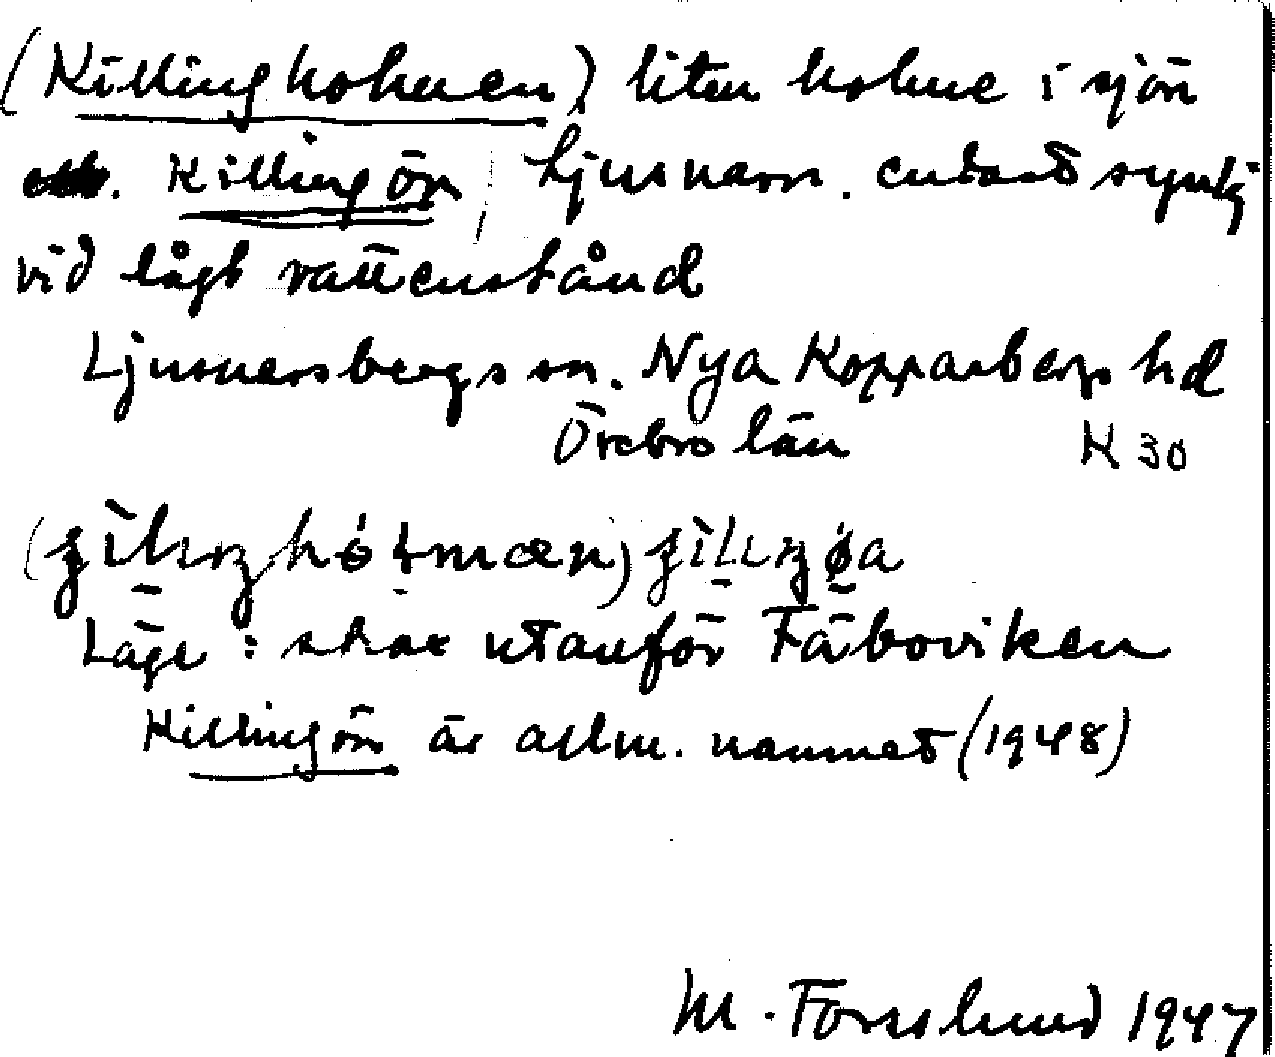 (Killingholmen) liten holme i sjön
Killingön Ljusnaren. endast synlig
vid lågt vattenstånd
Ljusnarsbergs sn. Nya Kopparbergs hd
Örebro län K 30
Läge: strax utanför Fäboviken
Killingön är allm. namnet (1948)
M. Forslund 1947